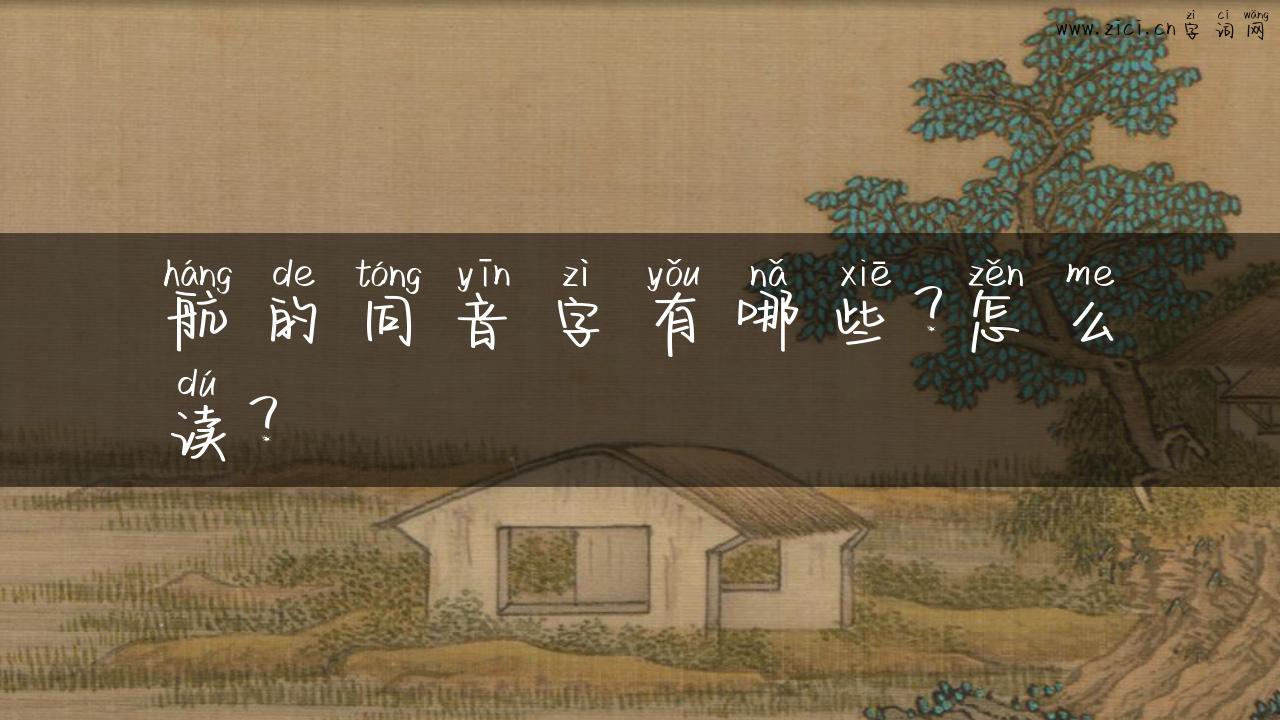 zì cí wǎng
www.zici.cn 字词网
háng de tóng yīn zì yǒu nǎ xiē zěn me
航的同音字有哪些？怎么
dú
读？